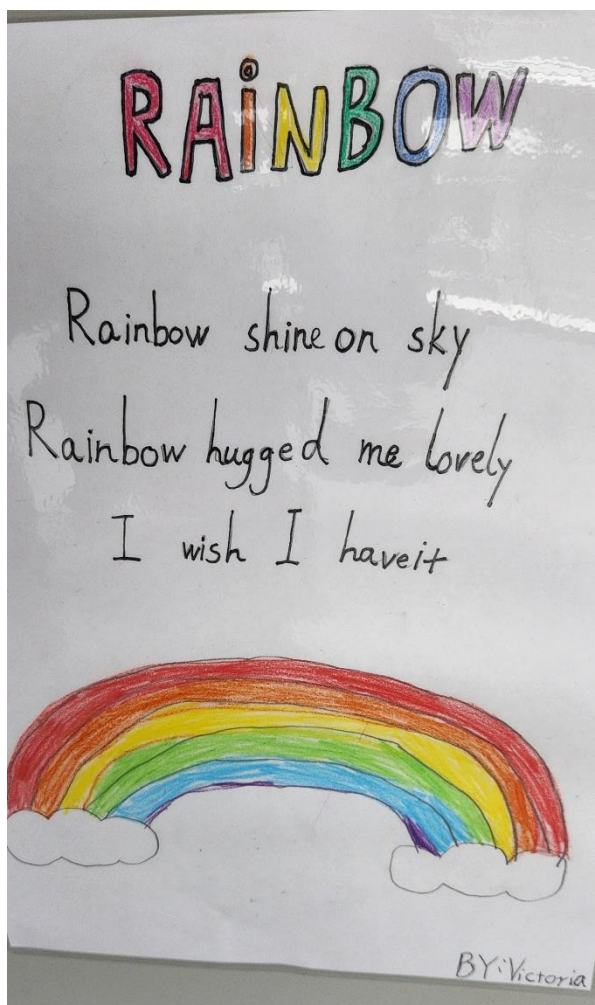 RAiNBOW
Rainbow shine on sky
Rainbow hugged me lovely
I wish I have it
BY: Victoria